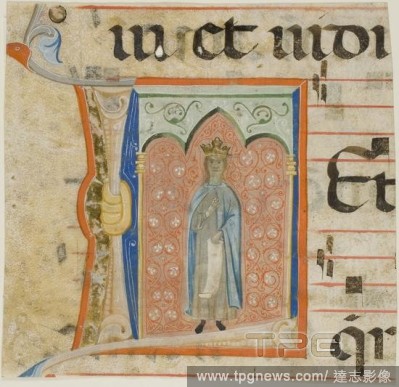 et uidi
Et
gr
TPG
www.tpgnews.com / 達志影像